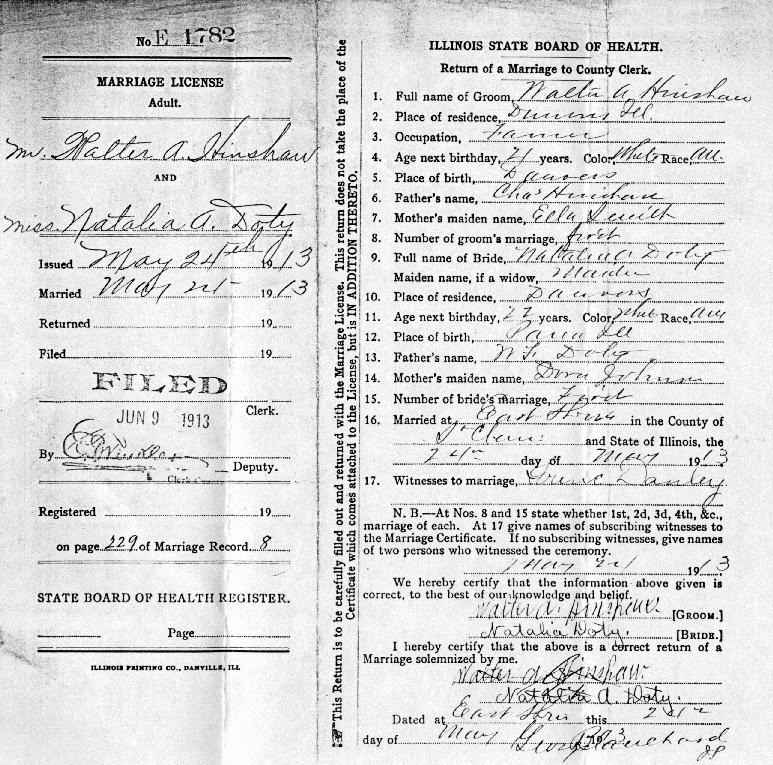 No. E 1782
MARRIAGE LICENSE
Adult.
Mr. Walter A. Hinshaw
AND
Miss. Natalia A. Doty
Issued May 24th 1913
Married May 24 1913
Returned 19
Filed 19
FILED
JUN 9 1913
Clerk.
By
Deputy.
Clerk County
Registered 19
on page 229 of Marriage Record 8
STATE BOARD OF HEALTH REGISTER.
Page
ILLINOIS PRINTING CO., DANVILLE, ILL
This Return is to be carefully filled out and returned with the Marriage License. This return does not take the place of the
Certificate which comes attached to the License, but is IN ADDITION THERETO.
ILLINOIS STATE BOARD OF HEALTH.
Return of a Marriage to County Clerk.
1. Full name of Groom, Walter A Hinshaw
2. Place of residence, Ill.
3. Occupation, Farmer
4. Age next birthday, 21 years. Color, White Race, Am
5. Place of birth, Danvers
6. Father's name, Chas Hinshaw
7. Mother's maiden name, Ella
8. Number of groom's marriage, first
9. Full name of Bride, Natalia A Doty
Maiden name, if a widow, Maiden
10. Place of residence, Danvers
11. Age next birthday, 22 years. Color, White Race, Am
12. Place of birth, Pana Ill
13. Father's name, Doty
14. Mother's maiden name, Dora Johnson
15. Number of bride's marriage, First
16. Married at East in the County of
St Clair and State of Illinois, the
24th day of May 1913
17. Witnesses to marriage,
N. B.—At Nos. 8 and 15 state whether 1st, 2d, 3d, 4th, &c.,
marriage of each. At 17 give names of subscribing witnesses to
the Marriage Certificate. If no subscribing witnesses, give names
of two persons who witnessed the ceremony.
May 24 1913
We hereby certify that the information above given is
correct, to the best of our knowledge and belief.
Walter A. Hinshaw [GROOM.]
Natalia Doty. [BRIDE.]
I hereby certify that the above is a correct return of a
Marriage solemnized by me.
Walter A Hinshaw.
Natalia A. Doty.
Dated at East this 24th
day of May 1913